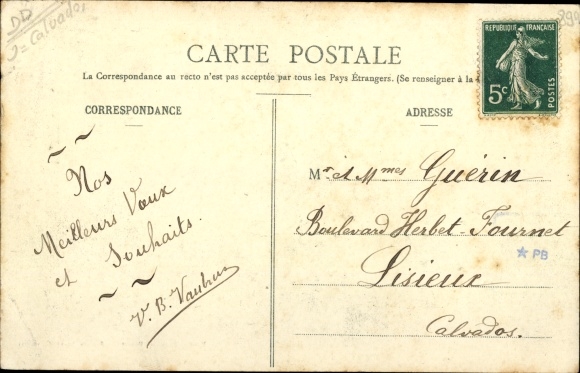 DD
J= Calvados
CARTE POSTALE
La Correspondance au recto n'est pas acceptée par tous les Pays Étrangers. (Se renseigner à la
RÉPUBLIQUE FRANÇAISE
5c
POSTES
CORRESPONDANCE
Nos
Meilleurs Vœux
et Souhaits.
V. B.
ADRESSE
Mr et Mmes Guérin
Boulevard Herbet-Fournet
Lisieux
Calvados.
* PB